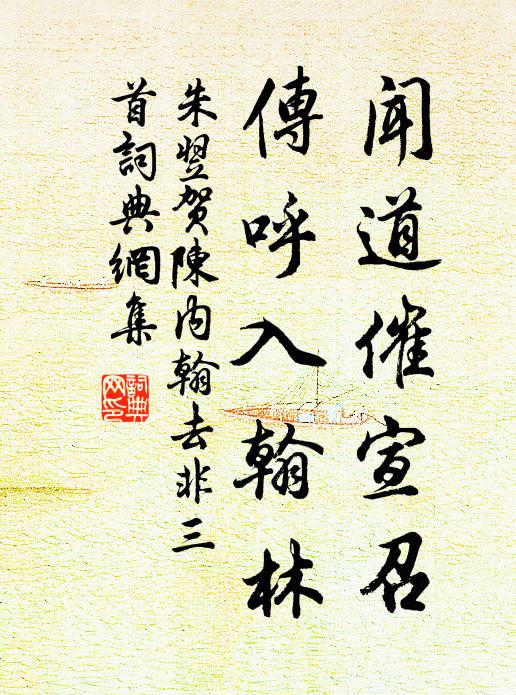 聞道催宣召
傳呼入翰林
朱翌賀陳內翰去非三
首詞典網集
詞典
网印